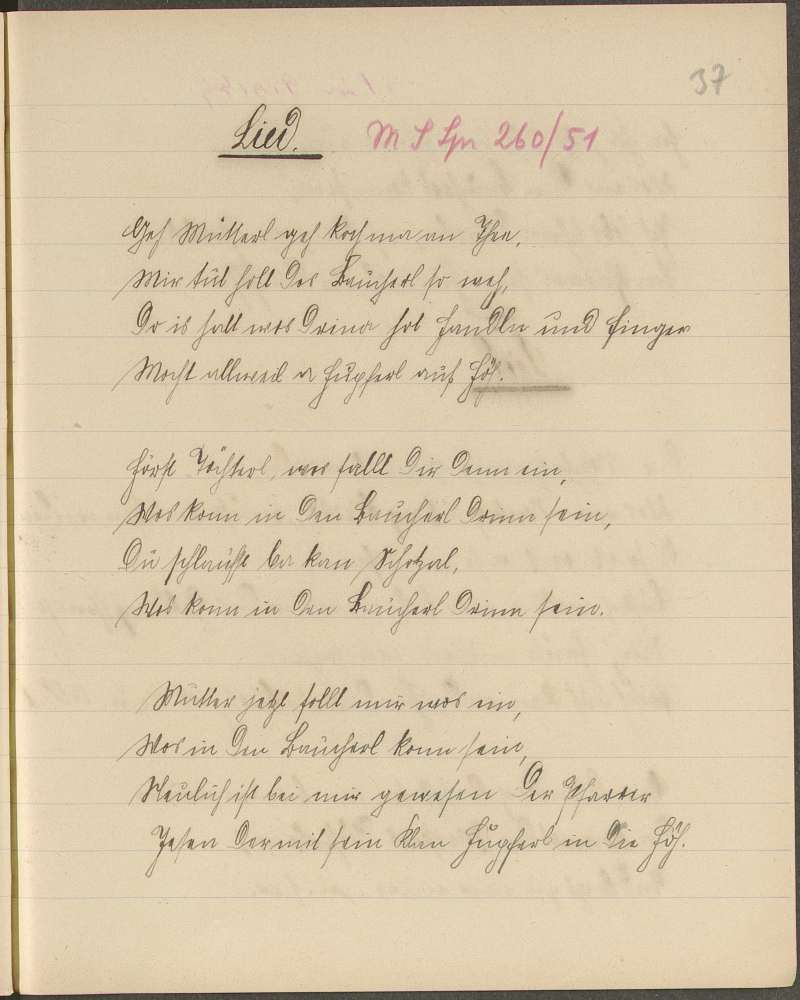 37
Lied. M S Spr 260/51
Geh Mutterl geh koch ma an Thee,
Mir tut holt des Baucherl so weh,
Do is halt wos drina hot Handln und Finger
Mocht allweil a Hupferl auf Höh.
Hörst Töchterl, wos fallt dir denn ein,
Wos konn in den Baucherl drinn sein,
Du schlaufst ba kan Schotzal,
Wos konn in den Baucherl drinn sein.
Mutter jetzt follt mir wos ein,
Wos in den Baucherl konn sein,
Neulich ist bei mir gewesen der Pfarrer
dermit sein klan Hupferl in die Höh.